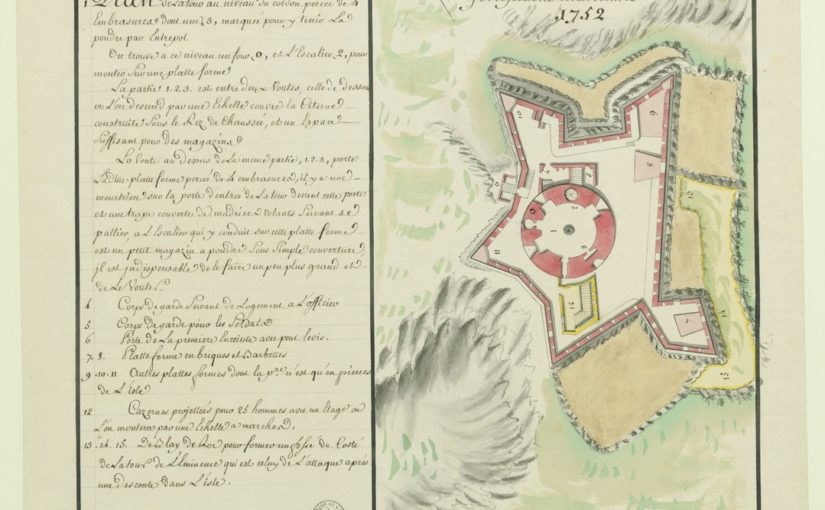 1 Plan de La tour au niveau du cordon percée de 4
Embrasures dont une, 3, marquée pour y tenir La
poudre par Entrepot.
On trouve a ce niveau un four 0, et L'Escalier 2, pour
monter sur une platte forme
La partie 1.2.3. est entre deux Voutes, celle de dessous
ou L'on descend par une Echelle couvre la Citerne
construitte sous le Rez de Chaussée, et un Espace
suffisant pour des magazins
La Voute au dessus de La meme partie, 1.2.3, porte
La ditte platte forme percée de 4 embrasures, il y a une
meurtriere sur la porte d'entrée de La tour devant cette porte
est une trape couverte de madriers Volants servant de
pallier a L'Escalier qui y conduit sur cette platte forme
est un petit magazin a poudre sous simple couverture,
il est indispensable de le faire un peu plus grand et
de Le Vouter.
4 Corps de garde servant de Logement a L'officier
5 Corps de garde pour les Soldats
6 Porte de La premiere Enceinte avec pont levis.
7. 8. Platte forme en briques et Barbettes
9. 10. 11 Autres plattes formes dont la p.re n'est qu'en pierres
de L'isle
12 Cazernes projettées pour 25 hommes avec un Etage ou
L'on montera par une Echelle a marches
13. 14. 15. Deblay de Roc pour former un fossé du Costé
de La tour de L'Eminence qui est celuy de L'attaque après
une descente dans L'isle.
1752